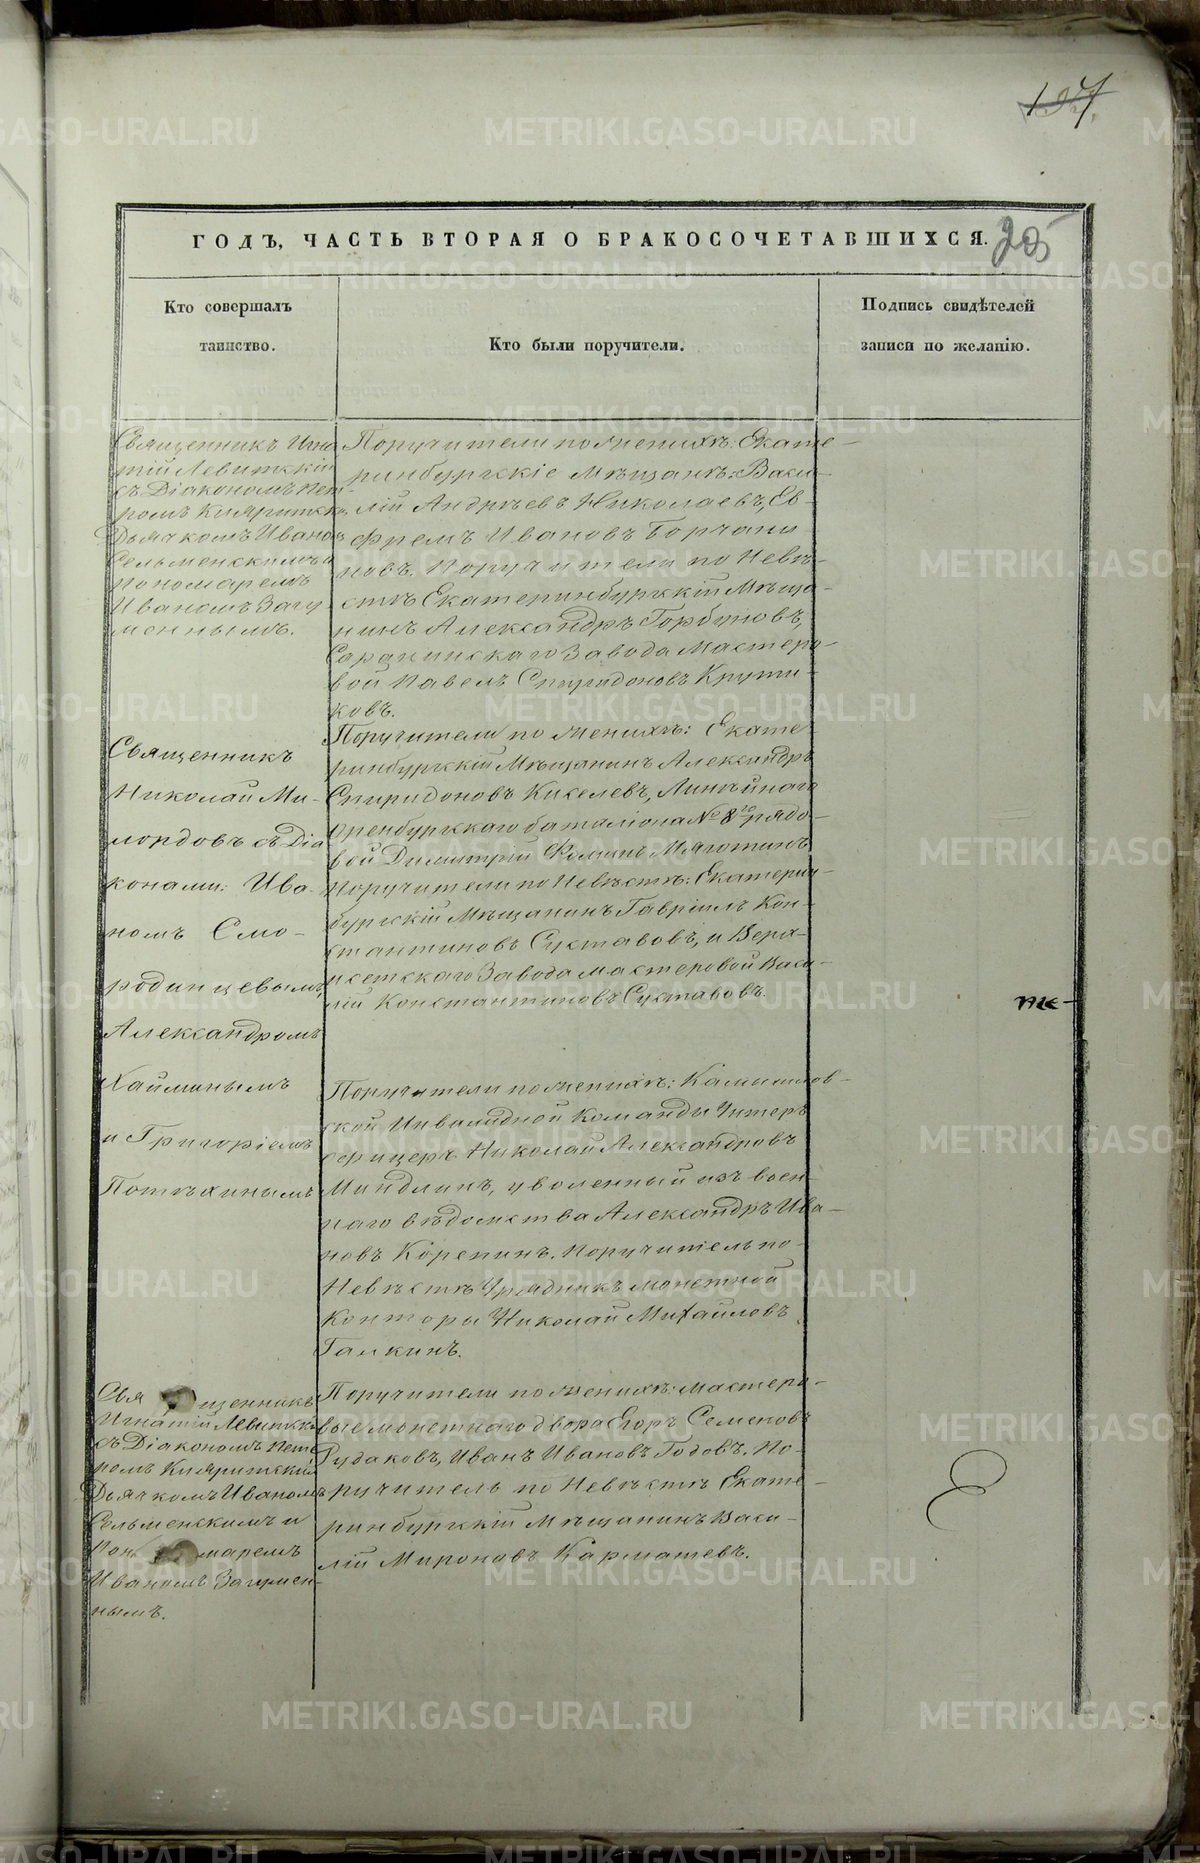 197.
ГОДЪ, ЧАСТЬ ВТОРАЯ О БРАКОСОЧЕТАВШИХСЯ.
205
Кто совершалъ
таинство.
Кто были поручители.
Подпись свидѣтелей
записи по желанію.
Священникъ Игна
тій Левитскій
съ Діакономъ Пет-
ромъ
Дьячкомъ Иваномъ
Сельменскимъ и
Пономаремъ
Иваномъ Загу
меннымъ.
Поручители по женихѣ: Екате-
ринбургскіе мѣщанѣ: Васи-
лій Андрѣевъ Николаевъ, Ев-
фремъ Ивановъ Борчани
новъ. Поручители по Невѣ-
стѣ Екатеринбургскій Мѣща-
нинъ Александръ Горбуновъ,
Сарапинскаго Завода Мастеро-
вой Павелъ Спиридоновъ Крути-
ковъ.
Священникъ
Николай Ми-
лордовъ съ Діа
конами: Ива-
номъ Смо-
родинцевымъ,
Александромъ
Хайминымъ
и Григоріемъ
Потѣхинымъ
Поручители по женихѣ: Екате
ринбургскій Мѣщанинъ Александръ
Спиридоновъ Киселевъ, Линѣйнаго
Оренбургскаго баталіона № 8го рядо-
вой Димитрій Фоминъ Мяготинъ
Поручители по Невѣстѣ: Екатерин-
бургскій Мѣщанинъ Гавріилъ Кон-
стантиновъ Суставовъ, и Верх-
исетскаго Завода мастеровой Васи-
лій Константиновъ Суставовъ.
Поручители по женихѣ: Камышлов-
ской Инвалидной Команды Унтеръ
офицеръ Николай Александровъ
Миндлинъ, уволенный изъ воен-
наго вѣдомства Александръ Ива-
новъ Корепинъ. Поручитель по
Невѣстѣ Урядникъ монетной
Конторы Николай Михайловъ
Галкинъ.
Свя щенникъ
Игнатій Левитскій
съ Діакономъ Пет
ромъ
Дьячкомъ Иваномъ
Сельменскимъ и
Пон маремъ
Иваномъ Загумен-
нымъ.
Поручители по женихѣ: мастеро-
вые монетнаго двора Егоръ Семеновъ
Рудаковъ, Иванъ Ивановъ Годовъ. По-
ручитель по Невѣстѣ Екате-
ринбургскій Мѣщанинъ Васи-
лій Мироновъ Карматевъ.